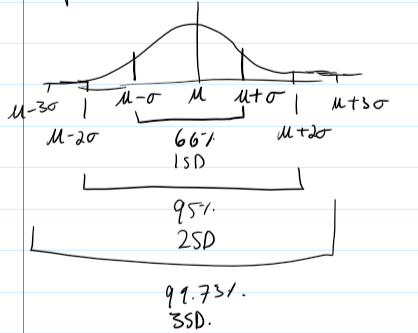 μ-3σ μ-2σ μ-σ μ μ+σ μ+2σ μ+3σ
66%
1SD
95%
2SD
99.73%.
3SD.